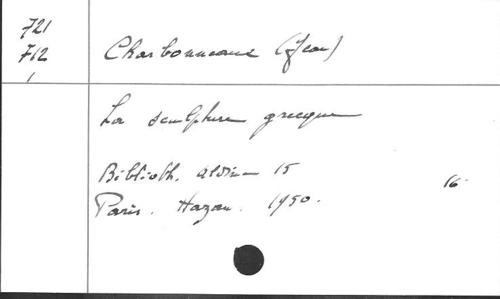 721
712 Charbonneaux (Jean)
1
La sculpture grecque
Biblioth. aldine 15
16
Paris. Hazan. 1950.